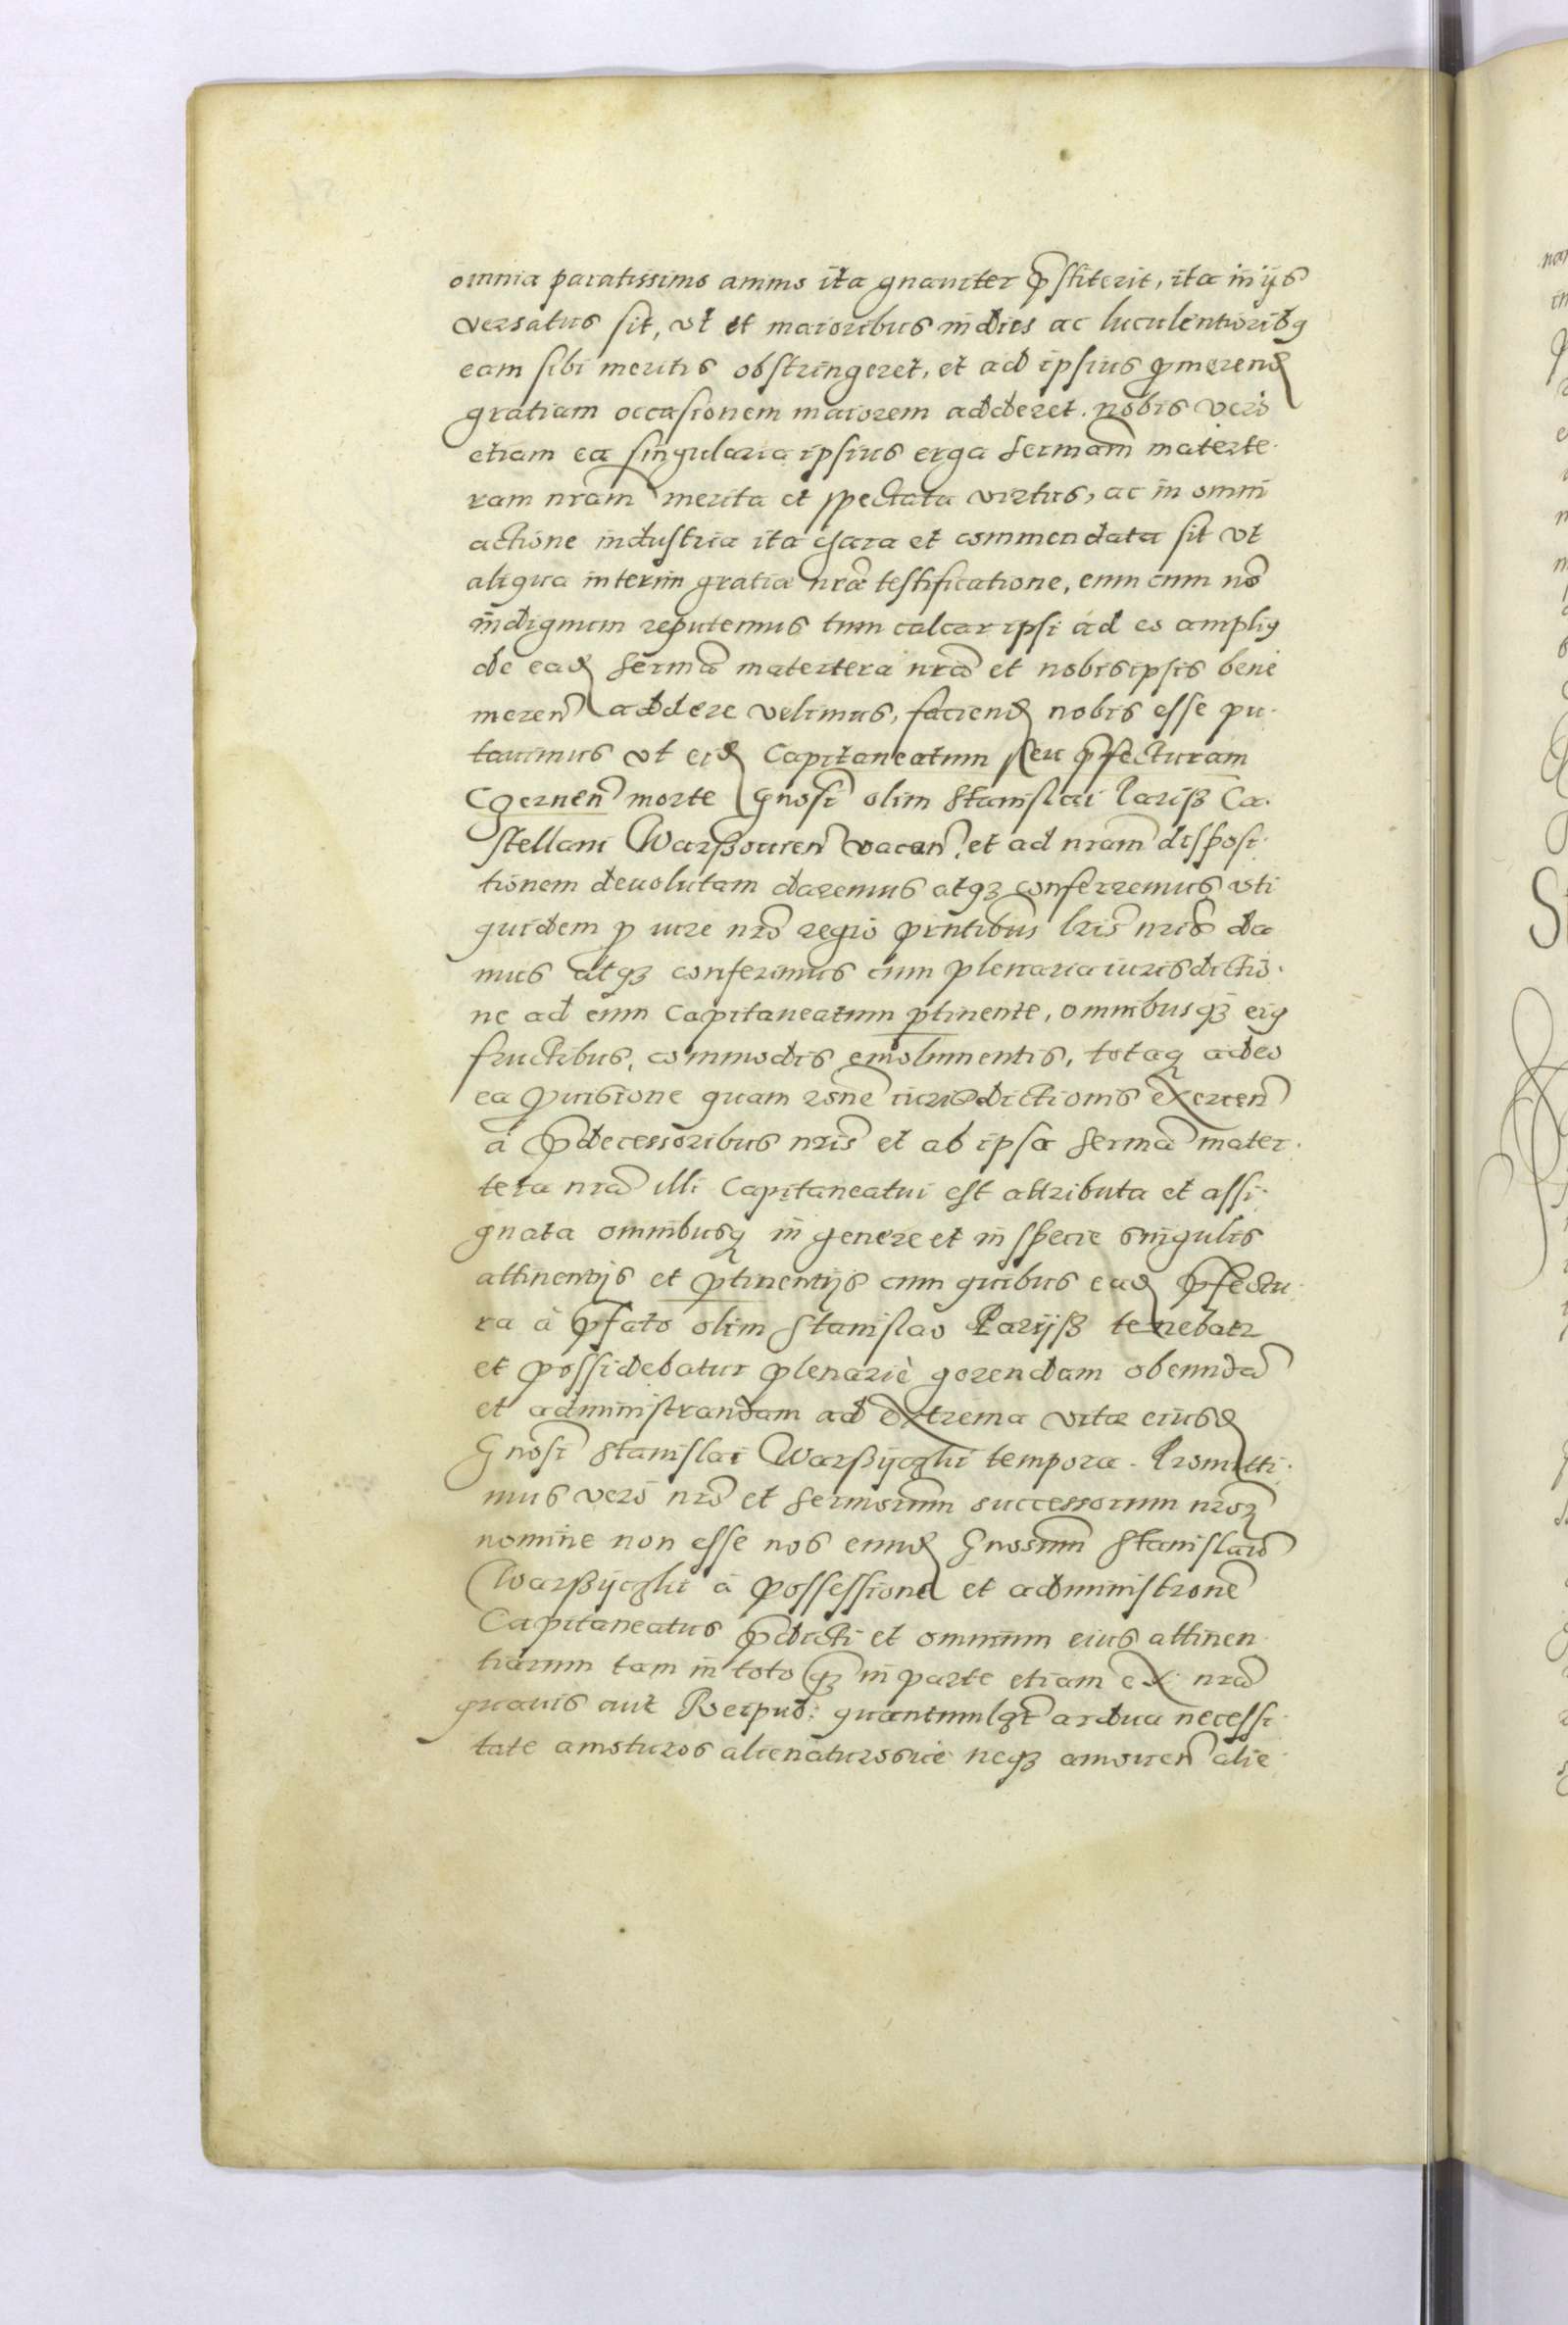 omnia paratissimo animo ita gnauiter p̄stiterit, ita in ijs
versatus sit, vt et maioribus indies ac luculentioribq
eam sibi meritis obstringeret, et ad ipsius pmerend
gratiam occasionem maiorem adderet. nobis vero
etiam ea singularia ipsius erga Sermam materte-
ram nram merita et spectata virtus, ac in omni
actione industria ita chara et commendata sit vt
aliqua interim gratiæ nræ testificatione, eum cum nō
indignum reputemus tum calcar ipsi ad eo amplig
de ead Serma matertera nra et nobis ipsis bene
meren addere velimus, faciend nobis esse pu-
tauimus vt eid Capitaneatum seu p̄fecturam
Czernen morte Gnosi olim Stanislai Pariß Ca-
stellani Warßouien vacan, et ad nram disposi-
tionem deuolutam daremus atqz conferremus vti
quidem p iure nro regio pntibus lris nris da
mus atqz conferimus cum plenaria iurisdictio-
ne ad eum Capitaneatum ptinente, omnibusqz eig
fructibus, commodis emolumentis, totaq adeo
ea puisione quam rone iurisdictionis exercen
à p̄decessoribus nris et ab ipsa Serma mater-
tera nra illi Capitaneatui est attributa et assi-
gnata omnibusq in genere et in specie singulis
attinentijs et ptinentijs cum quibus ead p̄fectu-
ra à p̄fato olim Stanislao Parijß tenebatr
et possidebatur plenariè gerendam obeundā
et administrandam ad extrema vitæ eiusd
Gnosi Stanislai Warßijczki tempora. Promitti-
mus vero nro et Sermorum successorum nror
nomine non esse nos eund Gnosum Stanislaū
Warßijczki à possessione et administrone
Capitaneatus p̄dicti et omnium eius attinen-
tiarum tam in toto qz in parte etiam ex nra
grauis aut Reipub: quantumlqt ardua necessi-
tate amoturos alienaturosue neqz amouen alie-